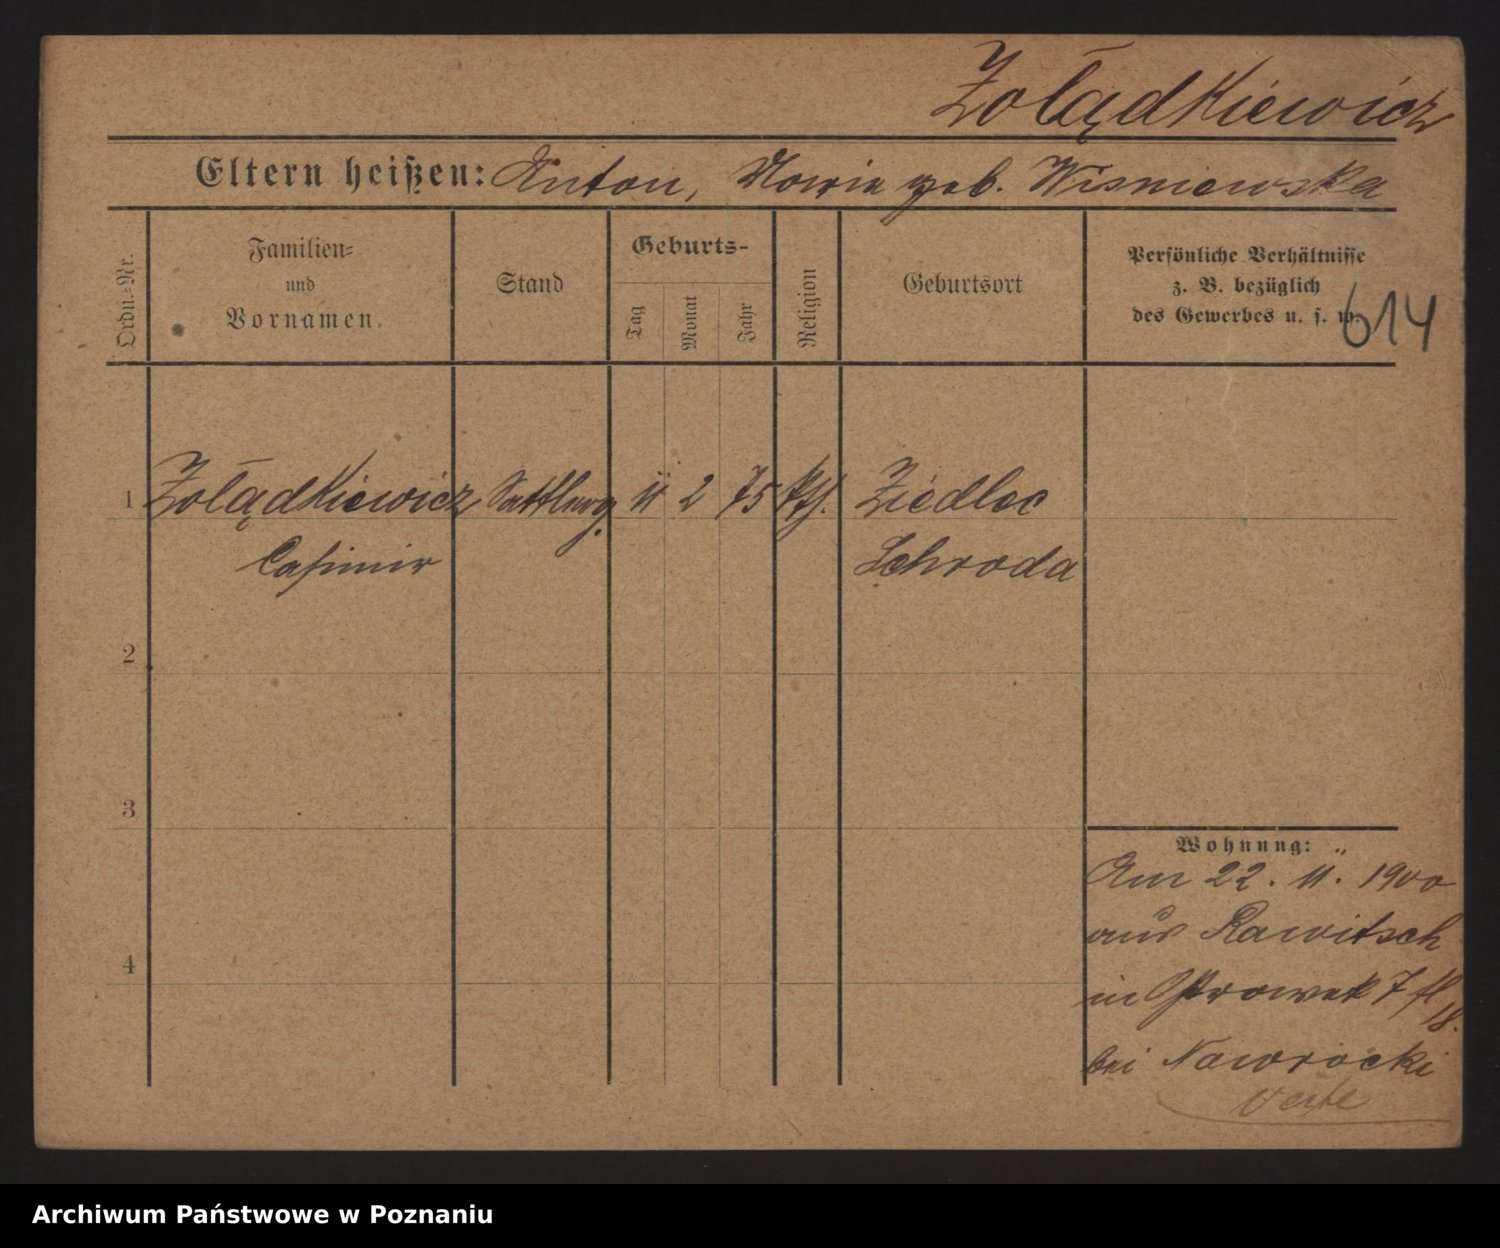 Żołądkiewicz
Eltern heißen: Anton, Maria geb. Wisniewska
Ordn.-Nr.
Familien-
und
Vornamen.
Stand
Geburts-
Tag
Monat
Jahr
Religion
Geburtsort
Persönliche Verhältnisse
z. B. bezüglich
des Gewerbes u. s. w.
614
1 Żołądkiewicz Sattlerg. 11 2 75 kth. Ziedlec
Casimir Schroda
2
3
4
Wohnung:
Am 22. 11. 1900
aus Rawitsch
in Ostrowek 7
bei Nawrocki
verte
Archiwum Państwowe w Poznaniu